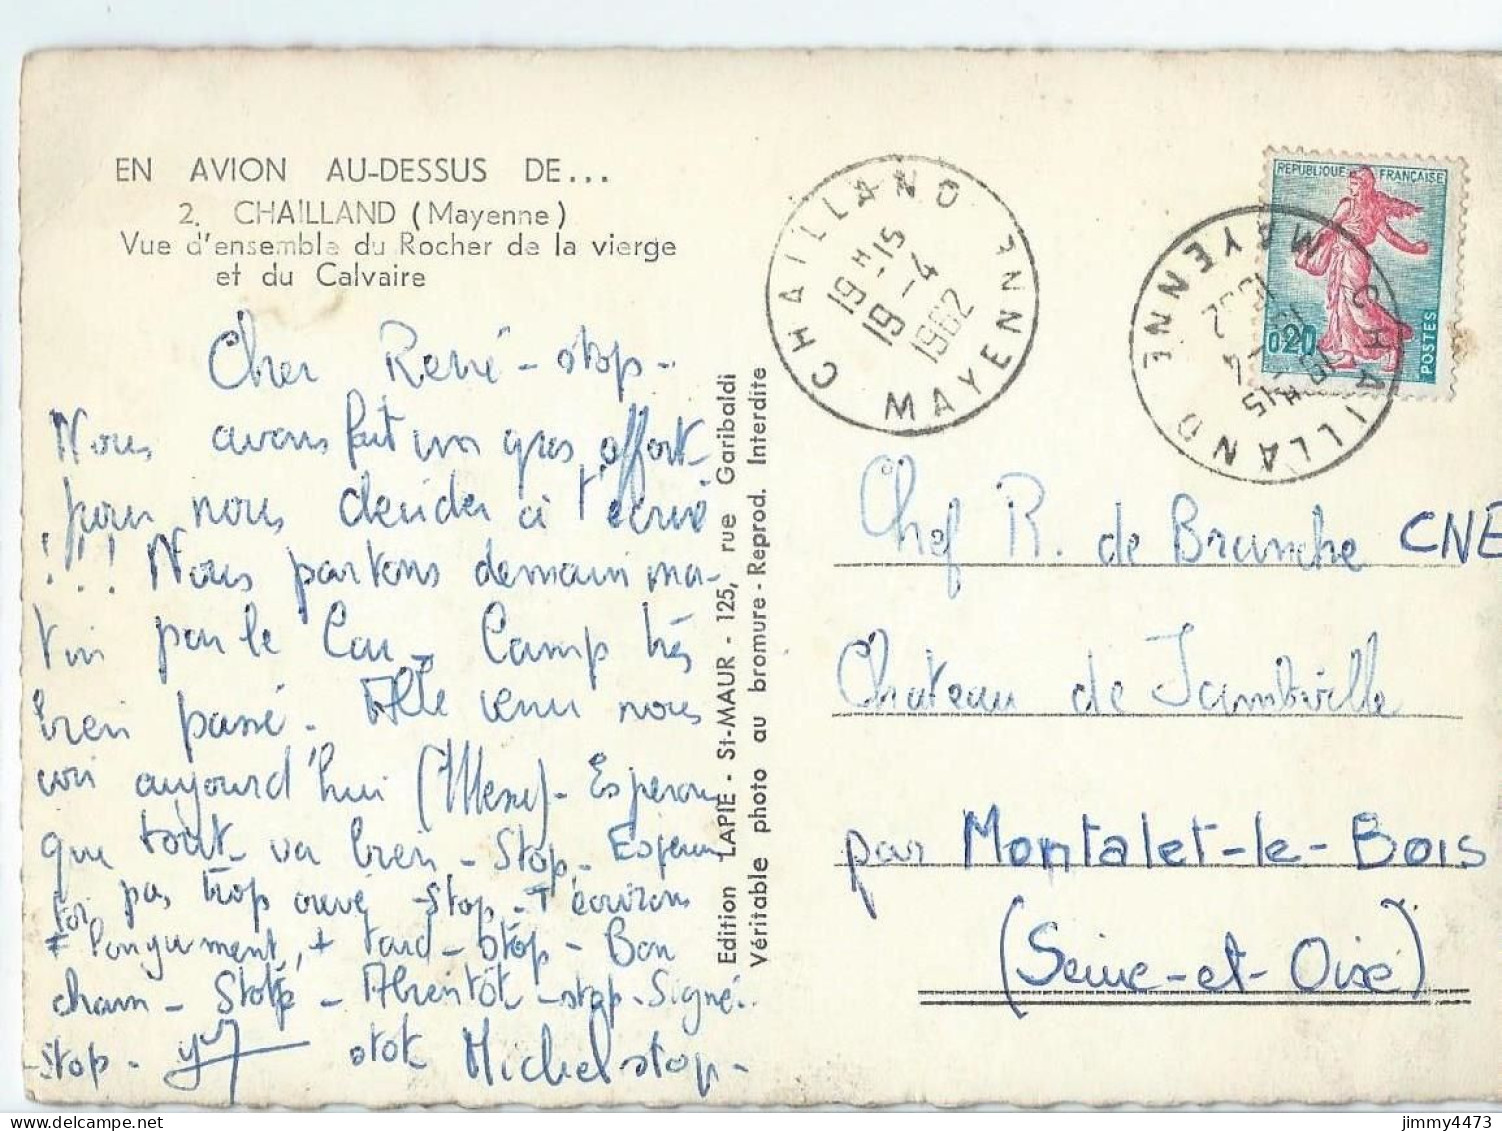 EN AVION AU-DESSUS DE...
2. CHAILLAND (Mayenne)
Vue d'ensemble du Rocher de la vierge
et du Calvaire
Cher René - stop -
Nous avons fait un gros effort
pour nous decider à t'écrire
!!! Nous partons demain ma-
tin par le Car. Camp très
bien passé. venu nous
voir aujourd'hui (Messe) - Espérons
que tout va bien - Stop. Espérons
toi pas trop crevé - Stop - T'écrirons
+ longuement, + tard - Stop - Bon
cham - Stop - A bientôt - stop - Signé -
- Stop - stop Michel stop -
Edition LAPIE - St-MAUR - 125, rue Garibaldi
Véritable photo au bromure - Reprod. Interdite
CHAILLAND MAYENNE
19H15
19-4
1962
CHAILLAND MAYENNE
19H15
19-4
1962
REPUBLIQUE FRANÇAISE
0,20
POSTES
Chef R. de Branche CNE
Chateau de Jambville
par Montalet-le-Bois
(Seine-et-Oise)
jimmy4473 @ delcampe.net